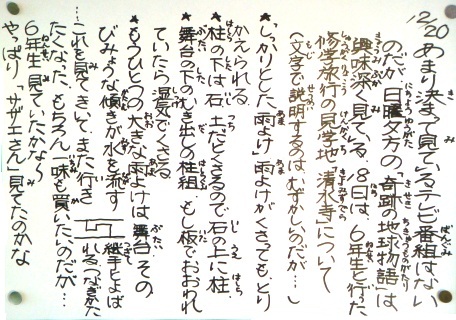 12/20 あまり決まって見ているテレビ番組はない
のだが、日曜夕方の「奇跡の地球物語」は
興味深く見ている。18日は、6年生と行った
修学旅行の見学地「清水寺」について
(文字で説明するのは、むずかしいのだが…)
★しっかりとした「雨よけ」雨よけがくさっても、とり
かえられる。
★柱の下は石 土だとくさるので石の上に柱。
★舞台の下のむき出しの柱組。もし板でおおわれ
ていたら湿気でくさる。
★もうひとつの大きな雨よけは、舞台。その
びみょうな傾きが水を流す。 継手とよば
れるつなぎかた
…これを見てきいて、また行き
たくなった。もちろん一味も買いたいのだが…
6年生、見ていたかな〜
やっぱり「サザエさん」見てたのかな